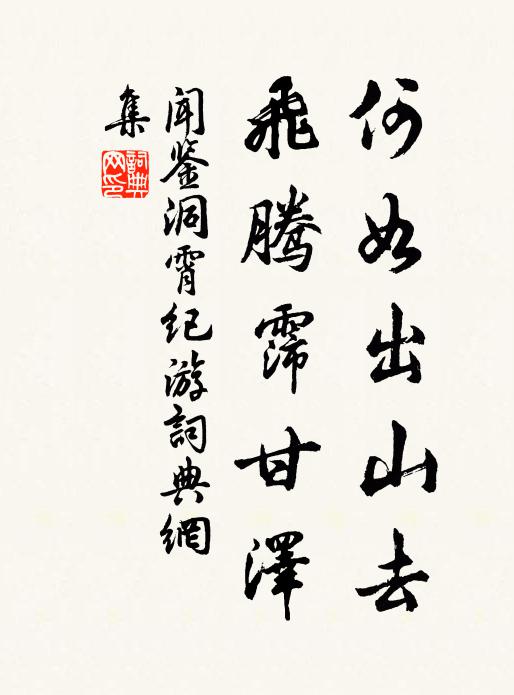 何如出山去
飛騰霈甘澤
闻鉴洞霄纪游詞典網
集
詞典网印